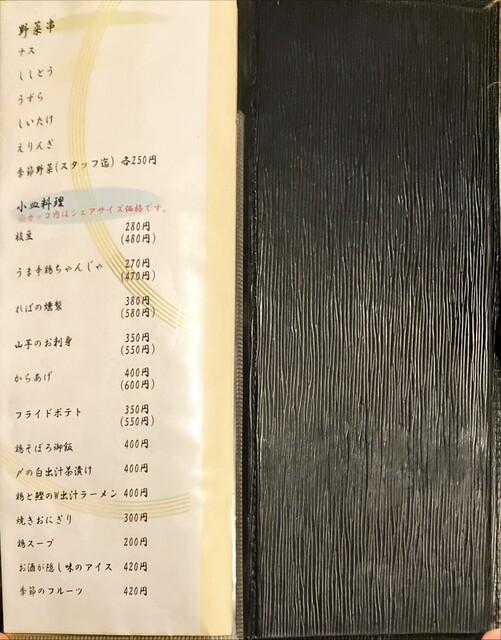 野菜串
ナス
ししとう
うずら
しいたけ
えりんぎ
季節野菜(スタッフ迄) 各250円
小皿料理
※カッコ内はシェアサイズ価格です。
枝豆 280円
(480円)
うま辛鶏ちゃんじゃ 270円
(470円)
ればの燻製 380円
(580円)
山芋のお刺身 350円
(550円)
からあげ 400円
(600円)
フライドポテト 350円
(550円)
鶏そぼろ御飯 400円
〆の白出汁茶漬け 400円
鶏と鰹のW出汁ラーメン 400円
焼きおにぎり 300円
鶏スープ 200円
お酒が隠し味のアイス 420円
季節のフルーツ 420円